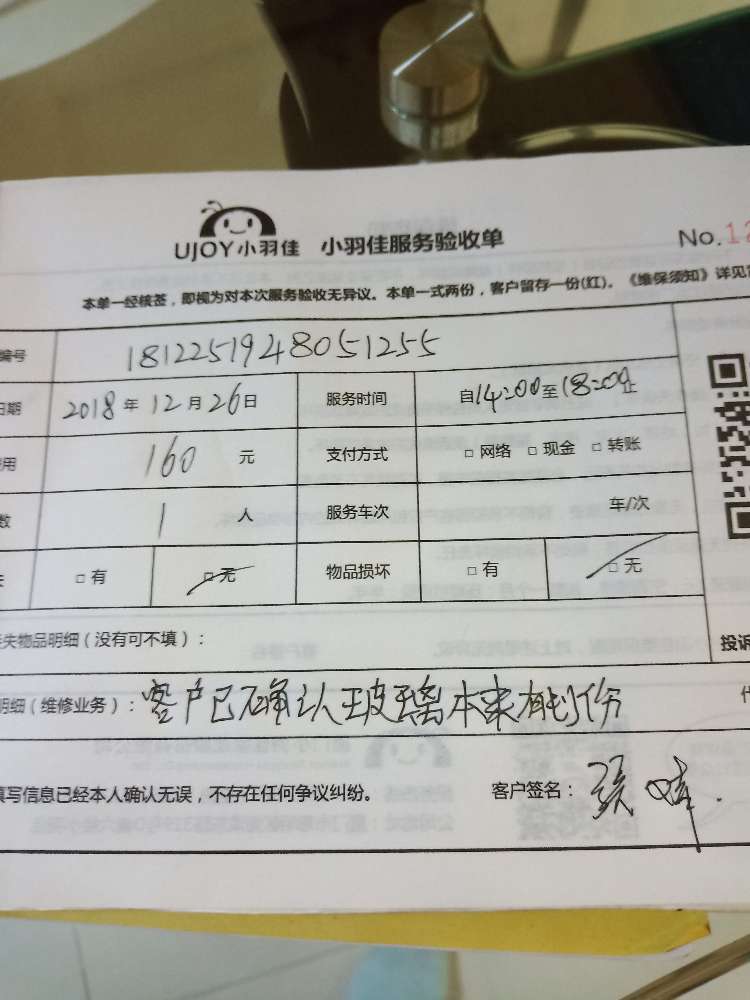 UJOY小羽佳 小羽佳服务验收单 No.12
本单一经核签，即视为对本次服务验收无异议。本单一式两份，客户留存一份(红)。《维保须知》详见
编号 1812251948051255
日期 2018年12月26日 服务时间 自14:00至18:00止
用 160 元 支付方式 □网络 □现金 □转账
数 1 人 服务车次 车/次
□有 □无 物品损坏 □有 □无
失物品明细（没有可不填）： 投诉
明细（维修业务）：客户已确认玻璃本来有划伤
填写信息已经本人确认无误，不存在任何争议纠纷。 客户签名：